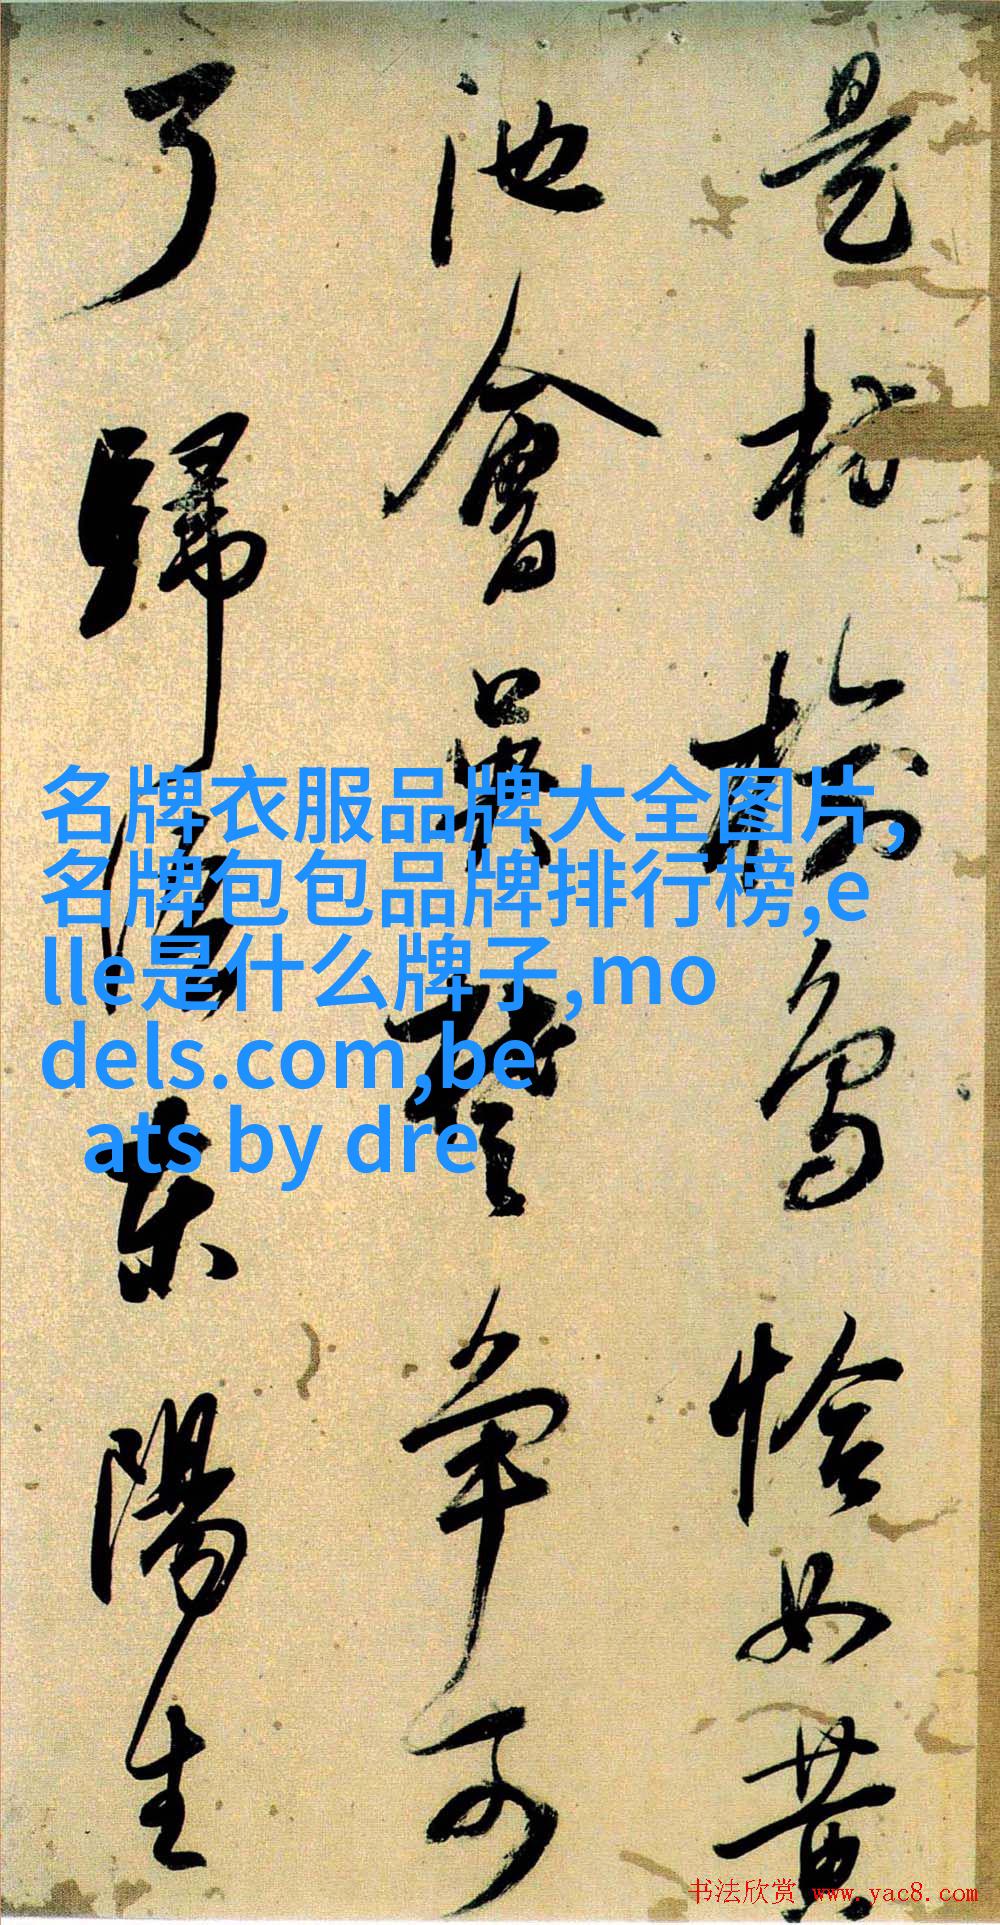 是枋榆鳥恰如黄
池會吳楚爭可
了歸東陽生
名牌衣服品牌大全图片,
名牌包包品牌排行榜,e
lle是什么牌子,mo
dels.com,be
ats by dre
书法欣赏 www.yac8.com